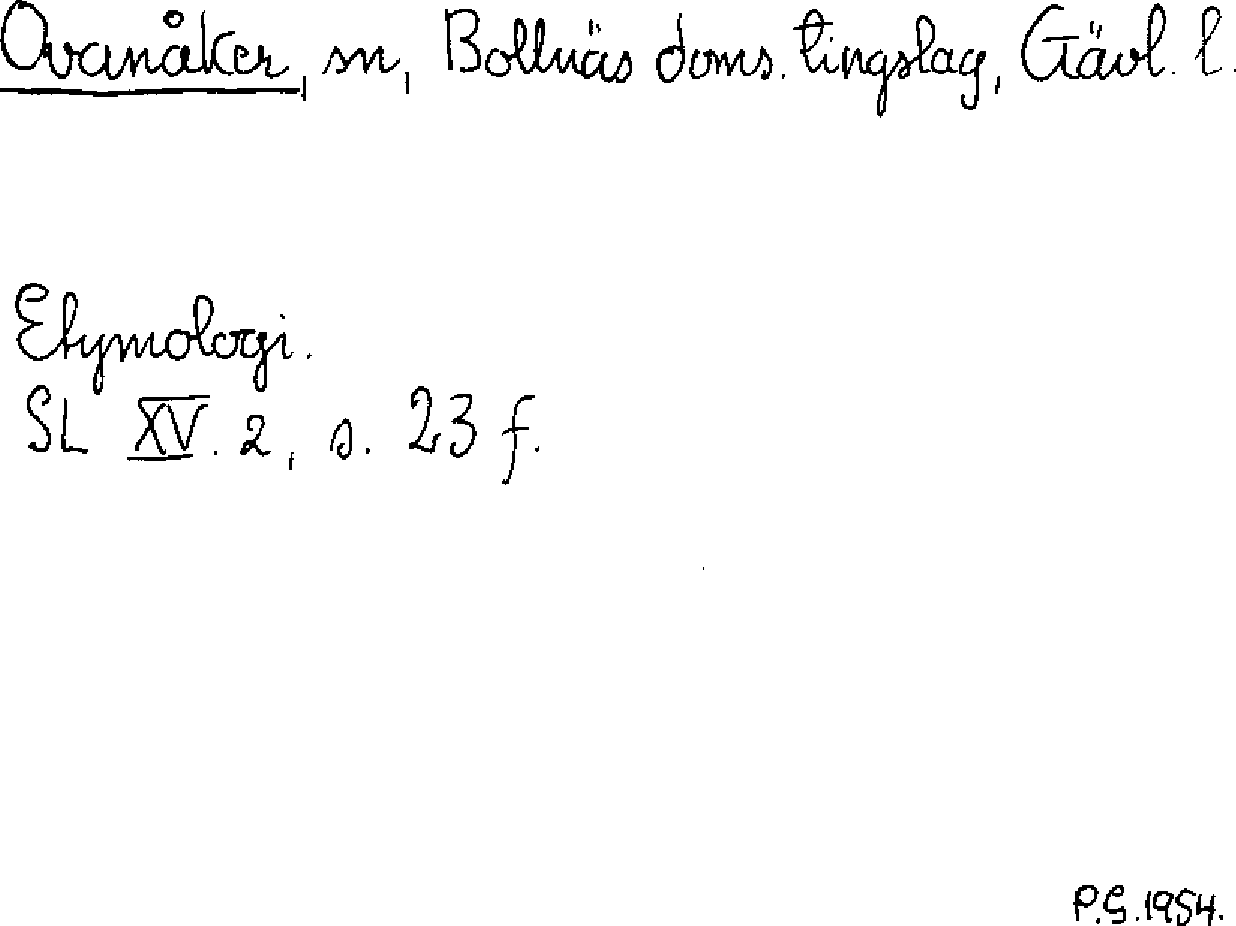 Ovanåker, sn, Bollnäs doms. tingslag, Gävl. l.
Etymologi.
SL XV. 2, s. 23 f.
P.G. 1954.